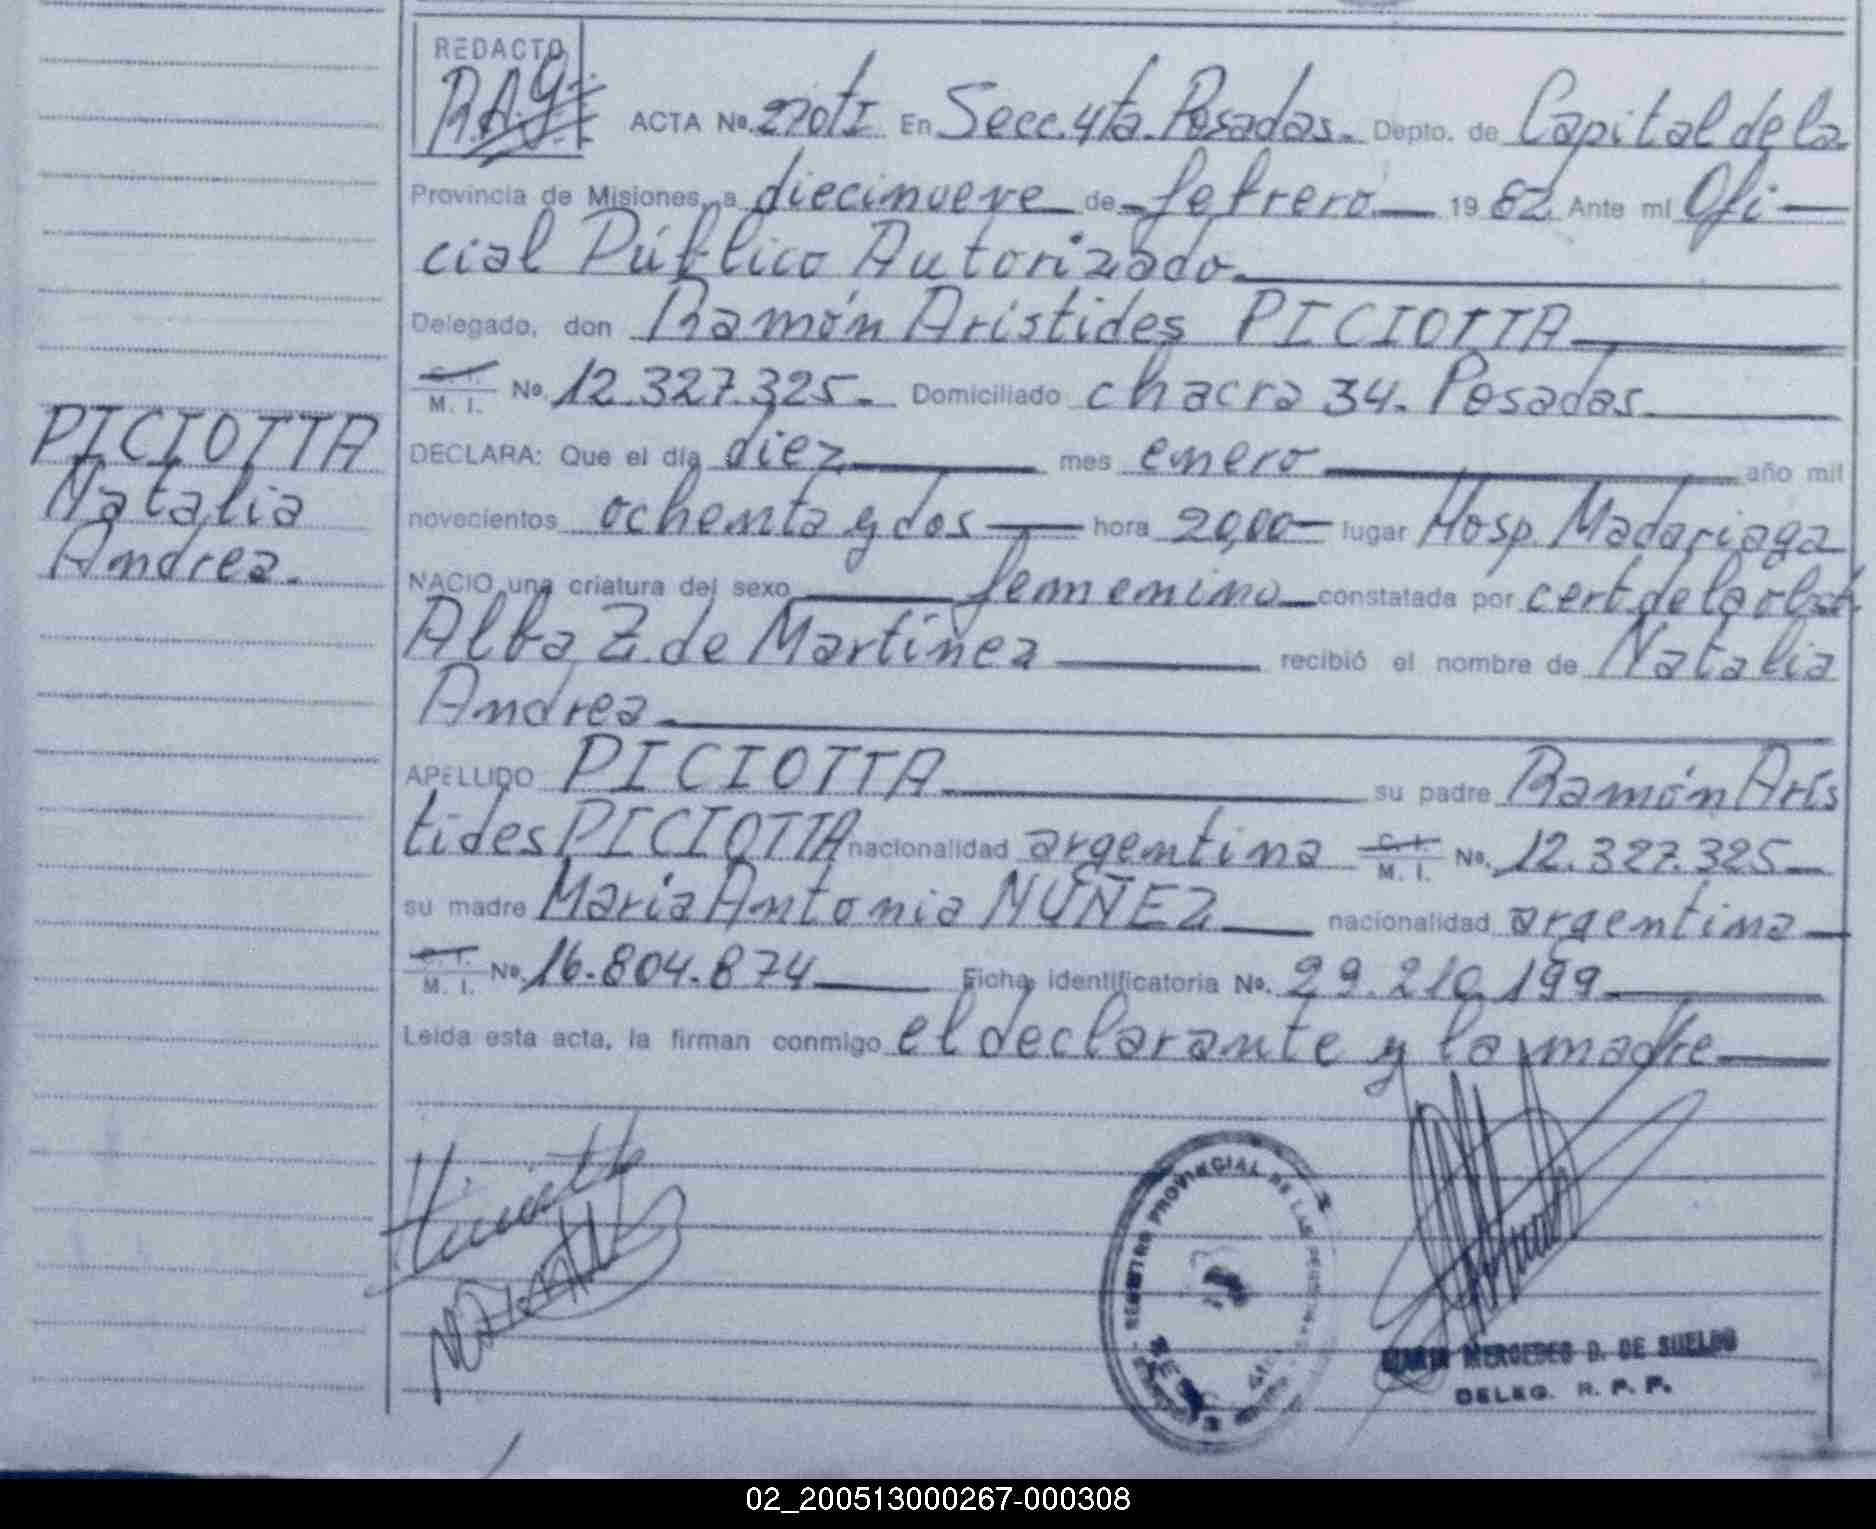 REDACTO
R.A.G.
ACTA Nº 270 t I En Secc. 4ta. Posadas. Depto. de Capital de la
Provincia de Misiones, a diecinueve de febrero 19 82 Ante mí Ofi-
cial Público Autorizado.
Delegado, don Ramón Arístides PICIOTTA
C. I. M. I. Nº. 12.327.325. Domiciliado chacra 34. Posadas.
PICIOTTA
Natalia
Andrea.
DECLARA: Que el día diez mes enero año mil
novecientos ochenta y dos hora 20,00 lugar Hosp. Madariaga
NACIO una criatura del sexo femenino constatada por cert. de la obst.
Alba Z. de Martínez recibió el nombre de Natalia
Andrea.
APELLIDO PICIOTTA su padre Ramón Arís
tides PICIOTTA nacionalidad argentina C. I. M. I. Nº. 12.327.325
su madre María Antonia NUÑEZ nacionalidad argentina
C. I. M. I. Nº. 16.804.874 Ficha identificatoria Nº. 29.210.199
Leída esta acta, la firman conmigo el declarante y la madre
REGISTRO PROVINCIAL DE LAS
MARIA MERCEDES D. DE SUELDO
DELEG. R. P. P.
02_200513000267-000308